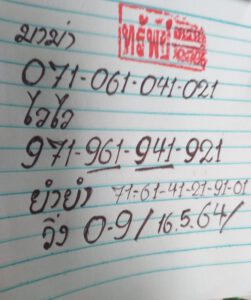 มาม่า
ทรัพย์
071-061-041-021
ไวไว
971-961-941-921
ยำยำ 71-61-41-21-91-01
วิ่ง 0-9/16.5.64/